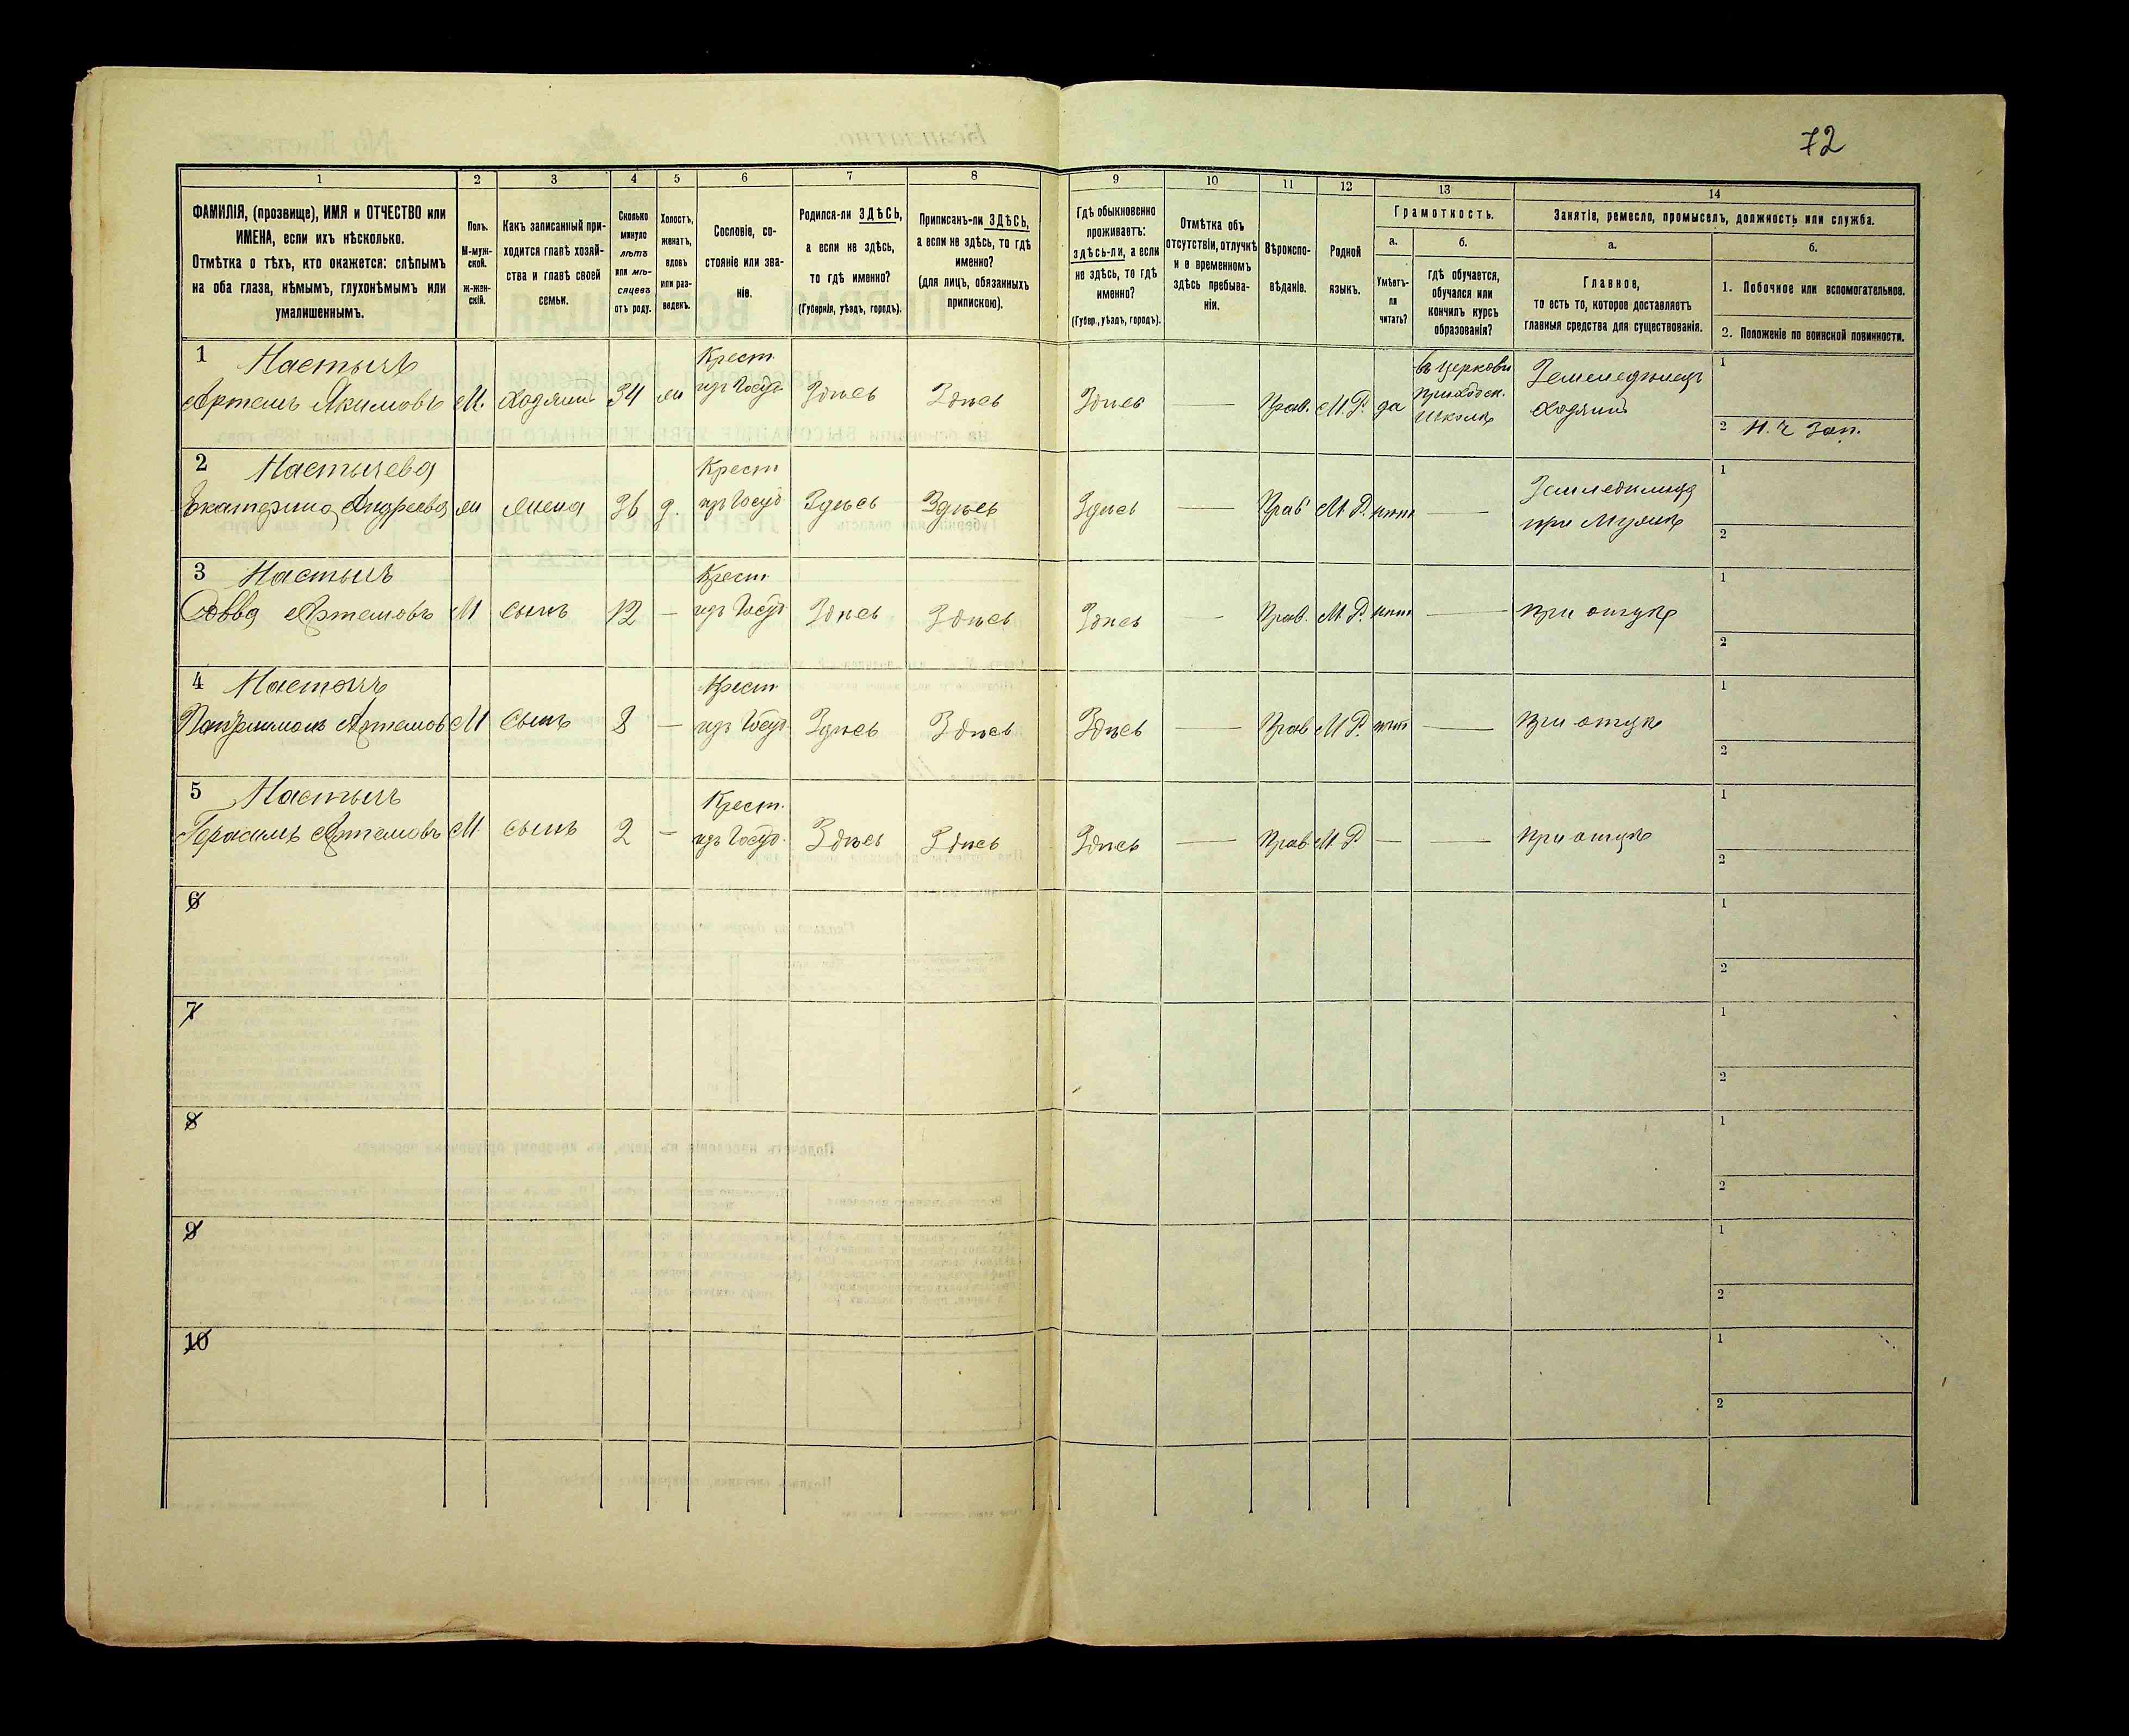 72
1 2 3 4 5 6 7 8 9 10 11 12 13 14
ФАМИЛІЯ, (прозвище), ИМЯ и ОТЧЕСТВО или
ИМЕНА, если ихъ нѣсколько.
Отмѣтка о тѣхъ, кто окажется: слѣпымъ
на оба глаза, нѣмымъ, глухонѣмымъ или
умалишеннымъ.
Полъ.
М-муж-
ской.
Ж-жен-
скій.
Какъ записанный при-
ходится главѣ хозяй-
ства и главѣ своей
семьи.
Сколько
минуло
лѣтъ
или мѣ-
сяцевъ
отъ роду.
Холостъ,
женатъ,
вдовъ
или раз-
веденъ.
Сословіе, со-
стояніе или зва-
ніе.
Родился-ли ЗДѢСЬ,
а если не здѣсь,
то гдѣ именно?
(Губернія, уѣздъ, городъ).
Приписанъ-ли ЗДѢСЬ,
а если не здѣсь, то гдѣ
именно?
(для лицъ, обязанныхъ
припискою).
Гдѣ обыкновенно
проживаетъ:
здѣсь-ли, а если
не здѣсь, то гдѣ
именно?
(Губер., уѣздъ, городъ).
Отмѣтка объ
отсутствіи, отлучкѣ
и о временномъ
здѣсь пребыва-
ніи.
Вѣроиспо-
вѣданіе.
Родной
языкъ.
Грамотность.
а.
Умѣетъ-
ли
читать?
б.
гдѣ обучается,
обучался или
кончилъ курсъ
образованія?
Занятіе, ремесло, промыселъ, должность или служба.
а.
Главное,
то есть то, которое доставляетъ
главныя средства для существованія.
б.
1. Побочное или вспомогательное.
2. Положеніе по воинской повинности.
1 Настычъ Крест. въ церковн Земледѣлецъ 1
Артемъ Якимовъ М. Хозяинъ 34 ж изъ Госуд. Здѣсь Здѣсь Здѣсь — Прав. М.Р. да приходск. хозяинъ
школѣ 2 Н. ч. Зап.
2 Настычева Крест Земледѣлица 1
Екатерина Андреева ж жена 36 з. изъ Госуд. Здѣсь Здѣсь Здѣсь — Прав М.Р. нѣт — при мужѣ 2
3 Настычъ Крест 1
Савва Артемовъ М сынъ 12 — изъ Госуд. Здѣсь Здѣсь Здѣсь — Прав. М.Р. нѣт — при отцѣ 2
4 Настычъ Крест 1
Артемов М сынъ 8 — изъ Госуд. Здѣсь Здѣсь Здѣсь — Прав М Р. нѣт — при отцѣ 2
5 Настычъ Крест. 1
Герасимъ Артемовъ М. сынъ 2 — изъ Госуд. Здѣсь Здѣсь Здѣсь — Прав М Р — — при отцѣ 2
6 1
2
7 1
2
8 1
2
9 1
2
10 1
2